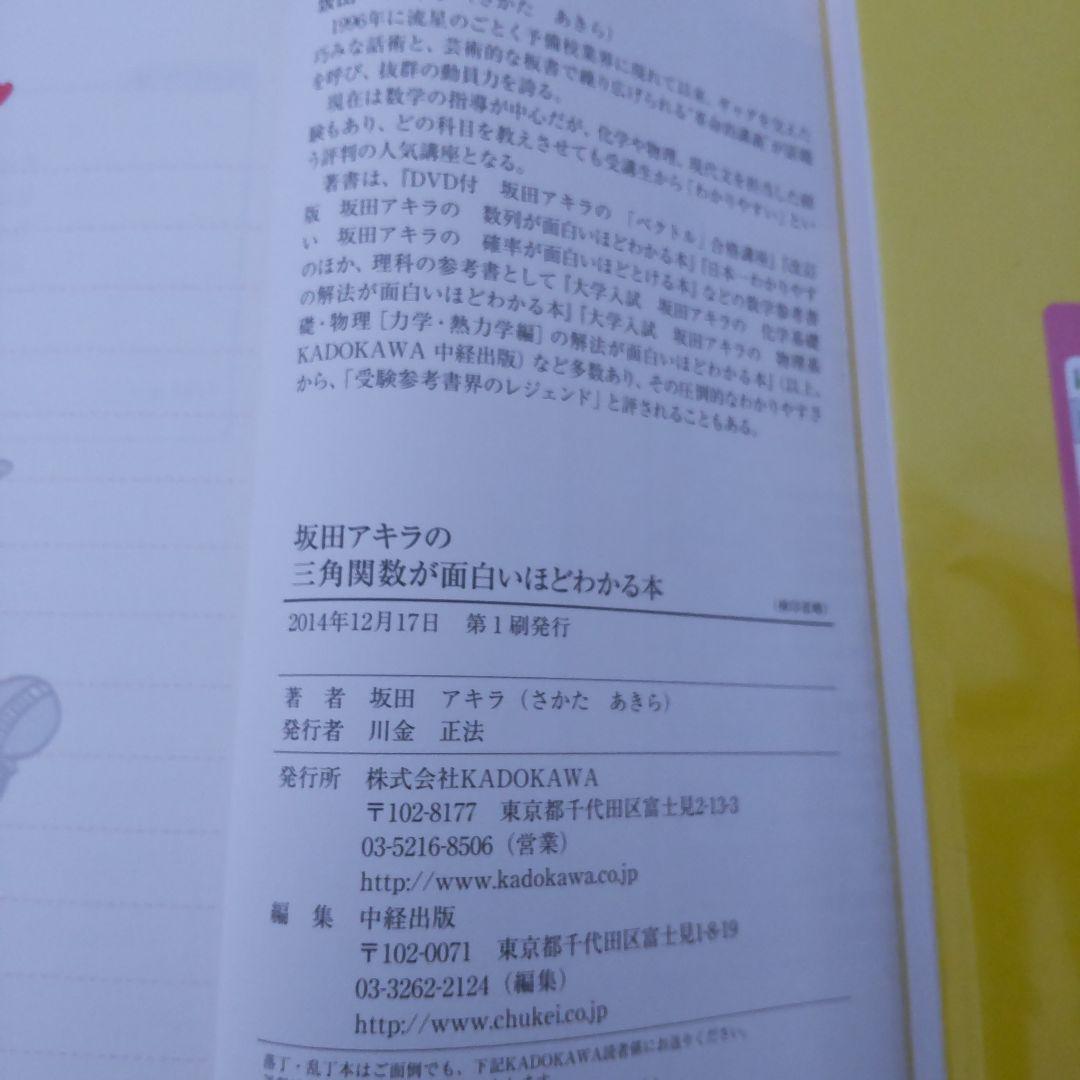 (さかた　あきら)
1996年に流星のごとく予備校業界に現れて以来、ギャグを交えた
巧みな話術と、芸術的な板書で繰り広げられる"革命的講義"が話題
を呼び、抜群の動員力を誇る。
現在は数学の指導が中心だが、化学や物理、現代文を担当した経
験もあり、どの科目を教えさせても受講生から「わかりやすい」とい
う評判の人気講座となる。
著書は、『DVD付　坂田アキラの　「ベクトル」合格講座』『改訂
版　坂田アキラの　数列が面白いほどわかる本』『日本一わかりやす
い　坂田アキラの　確率が面白いほどとける本』などの数学参考書
のほか、理科の参考書として『大学入試　坂田アキラの　化学基礎
の解法が面白いほどわかる本』『大学入試　坂田アキラの　物理基
礎・物理［力学・熱力学編］の解法が面白いほどわかる本』(以上、
KADOKAWA 中経出版）など多数あり、その圧倒的なわかりやすさ
から、「受験参考書界のレジェンド」と評されることもある。
坂田アキラの
三角関数が面白いほどわかる本
(検印省略)
2014年12月17日　第1刷発行
著　者　坂田　アキラ（さかた　あきら）
発行者　川金　正法
発行所　株式会社KADOKAWA
〒102-8177　東京都千代田区富士見2-13-3
03-5216-8506（営業）
http://www.kadokawa.co.jp
編　集　中経出版
〒102-0071　東京都千代田区富士見1-8-19
03-3262-2124（編集）
http://www.chukei.co.jp
落丁・乱丁本はご面倒でも、下記KADOKAWA読者係にお送りください。